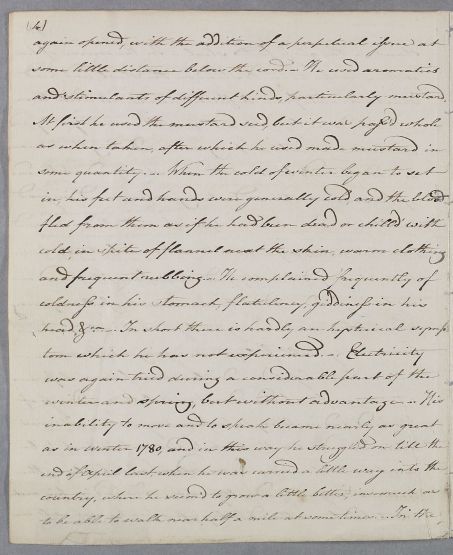 (4)
again opened, with the addition of a perpetual issue at
some little distance below the cord. – He used aromatics
and stimulants of different kinds, particularly mustard
At first he used the mustard seed, but it was pass'd whole
as when taken, after which he used made mustard in
some quantity. – When the cold of winter began to set
in, his feet and hands were generally cold and the blood
fled from them as if he had been dead or chill'd with
cold, in spite of flannel next the skin, warm clothing
and frequent rubbing. – He complained frequently of
coldness in his stomach, flatulency, giddiness in his
head, &c – In short there is hardly an hysterical symp
tom which he has not experienced. – Electricity
was again tried during a considerable part of the
winter and spring, but without advantage. – His
inability to move and to speak became nearly as great
as in winter 1780, and in this way he struggled on till the
end of April last when he was carried a little way into the
country, where he seem'd to grow a little better, insomuch as
to be able to walk near half a mile at some times. – In the